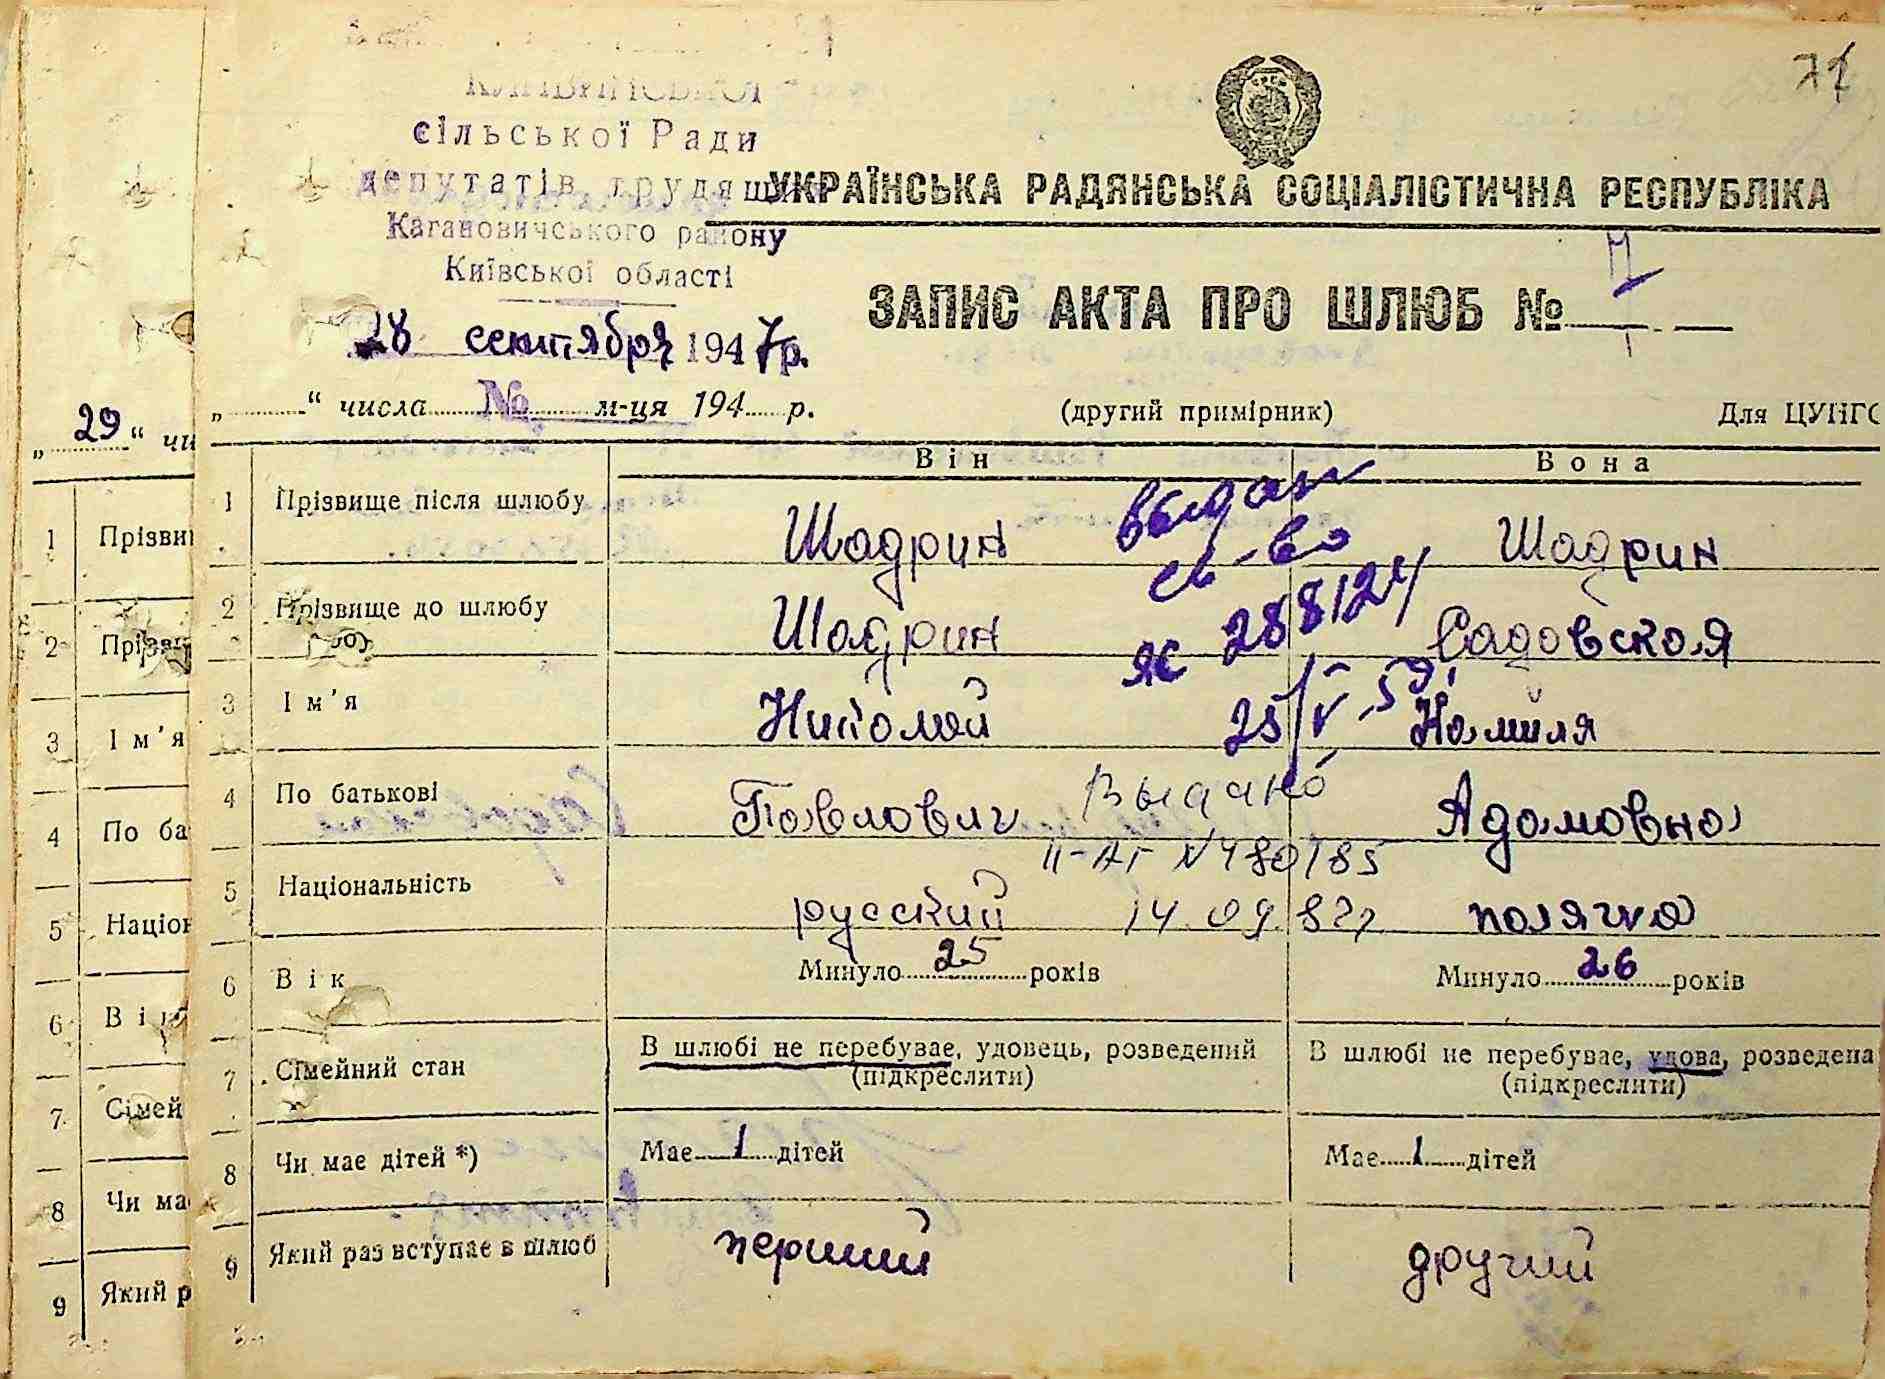 71
сільської Ради
депутатів трудящих
Кагановичського району
Київської області
УКРАЇНСЬКА РАДЯНСЬКА СОЦІАЛІСТИЧНА РЕСПУБЛІКА
ЗАПИС АКТА ПРО ШЛЮБ №
28 сентября 1947р.
„ “ числа № м-ця 194 р.
(другий примірник)
Для ЦУНГО
Він
Вона
1 Прізвище після шлюбу Шадрин Шадрин
выдан
св-во
2 Прізвище до шлюбу Шадрин Садовская
ЯС 288124
3 Ім'я Николай Камиля
25/V-59
4 По батькові Павлович Адамовна
Выдано
II-АГ №480785
5 Національність русский полячка
14.09.82
6 Вік Минуло 25 років Минуло 26 років
7 Сімейний стан В шлюбі не перебуває, удовець, розведений В шлюбі не перебуває, удова, розведена
(підкреслити) (підкреслити)
8 Чи має дітей *) Має 1 дітей Має 1 дітей
9 Який раз вступає в шлюб перший другий
„ 29 “ чи
1 Прізви
2 Прізви
3 Ім'я
4 По ба
5 Націон
6 Ві
7 Сімей
8 Чи ма
9 Який р